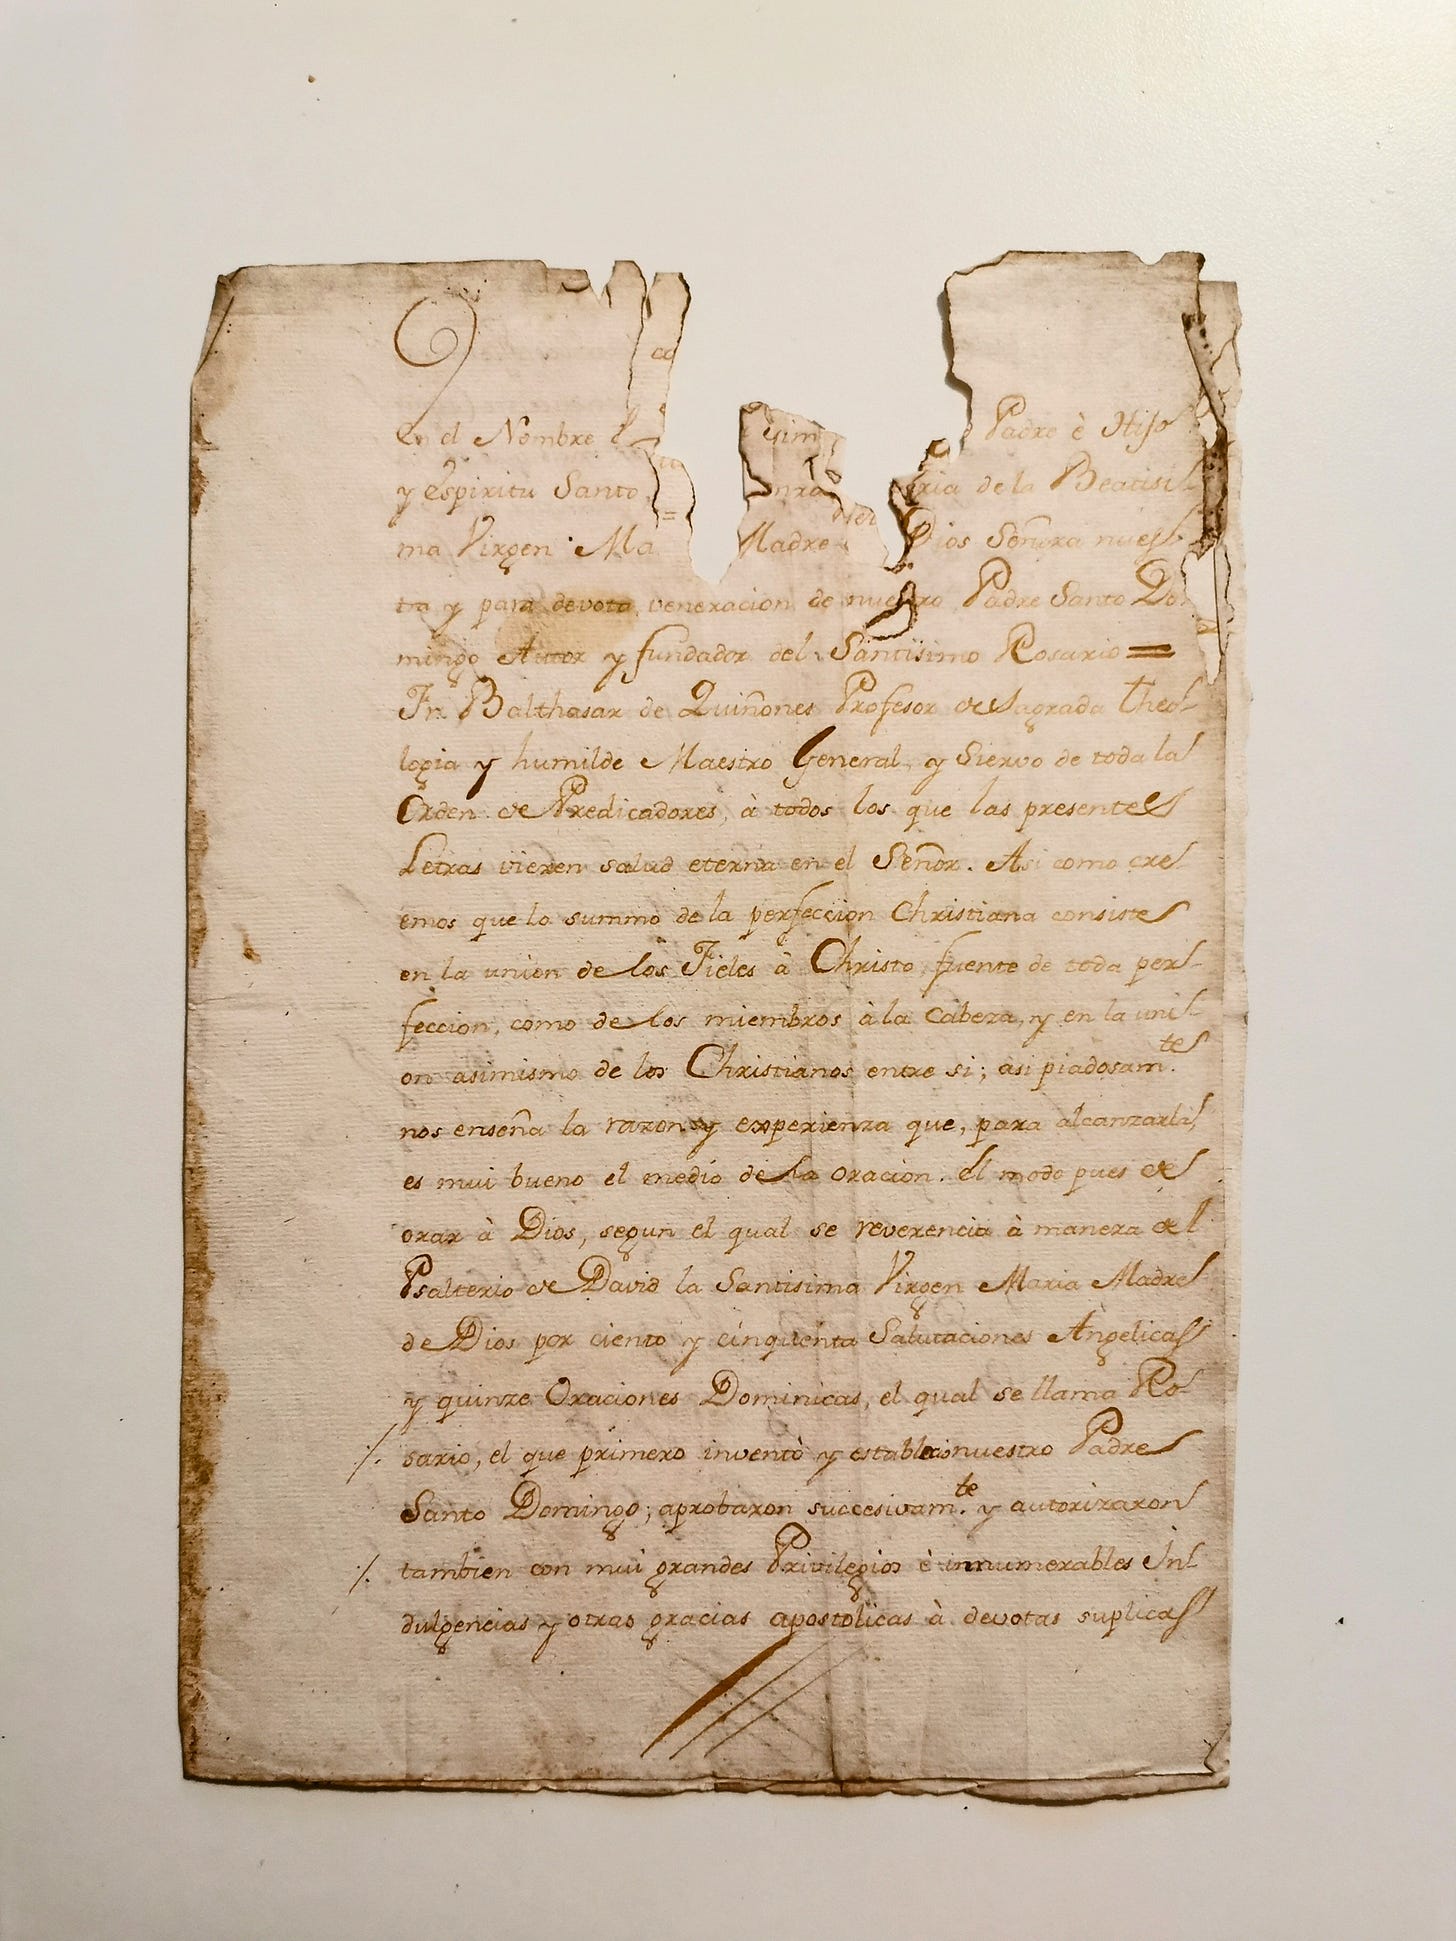 En el Nombre Padre è Hijo
y Espiritu Santo de la Beatisi-
ma Virgen Ma Madre Dios Señora nues-
tra y para devota veneracion de nuestro Padre Santo Do-
mingo Autor y fundador del Santisimo Rosario =
Fr. Balthasar de Quiñones Profesor de Sagrada Theo-
logia y humilde Maestro General, y Siervo de toda la
Orden de Predicadores, à todos los que las presentes
Letras vieren salud eterna en el Señor. Asi como cre
emos que lo summo de la perfeccion Christiana consiste
en la union de los Fieles à Christo fuente de toda per-
feccion, como de los miembros à la Cabeza, y en la uni-
on asimismo de los Christianos entre si; asi piadosam.te
nos enseña la razon y experienza que, para alcanzarla,
es mui bueno el medio de la oracion. El modo pues de
orar à Dios, segun el qual se reverencia à manera del
Psalterio de David la Santisima Virgen Maria Madre
de Dios por ciento y cinqüenta Salutaciones Angelicas
y quinze Oraciones Dominicas, el qual se llama Ro-
sario, el que primero inventò y establecio nuestro Padre
Santo Domingo; aprobaron succesivam.te y autorizaron
tambien con mui grandes Privilegios è innumerables In-
dulgencias y otras gracias apostolicas à devotas suplicas